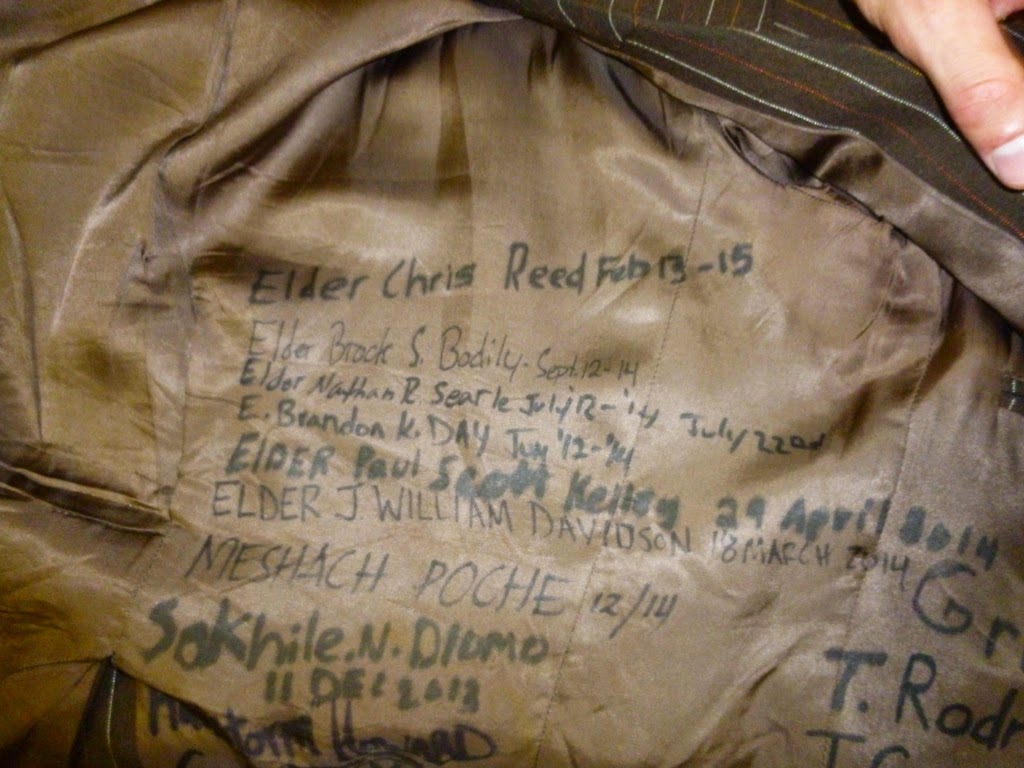 Elder Chris Reed Feb 13 -15
Elder Brock S. Bodily. Sept. 12-14
Elder Nathan R. Searle July '12 - '14 July 22nd
E. Brandon K. DAY Jun '12-'14
ElDER Paul Scott Kelley 29 April 2014
ELDER J. WILLIAM DAVIDSON 18 MARCH 2014
MESHACH POCHE 12/14
Sakhile. N. Dlomo
11 DEC 2013
Gr
T. Rodr